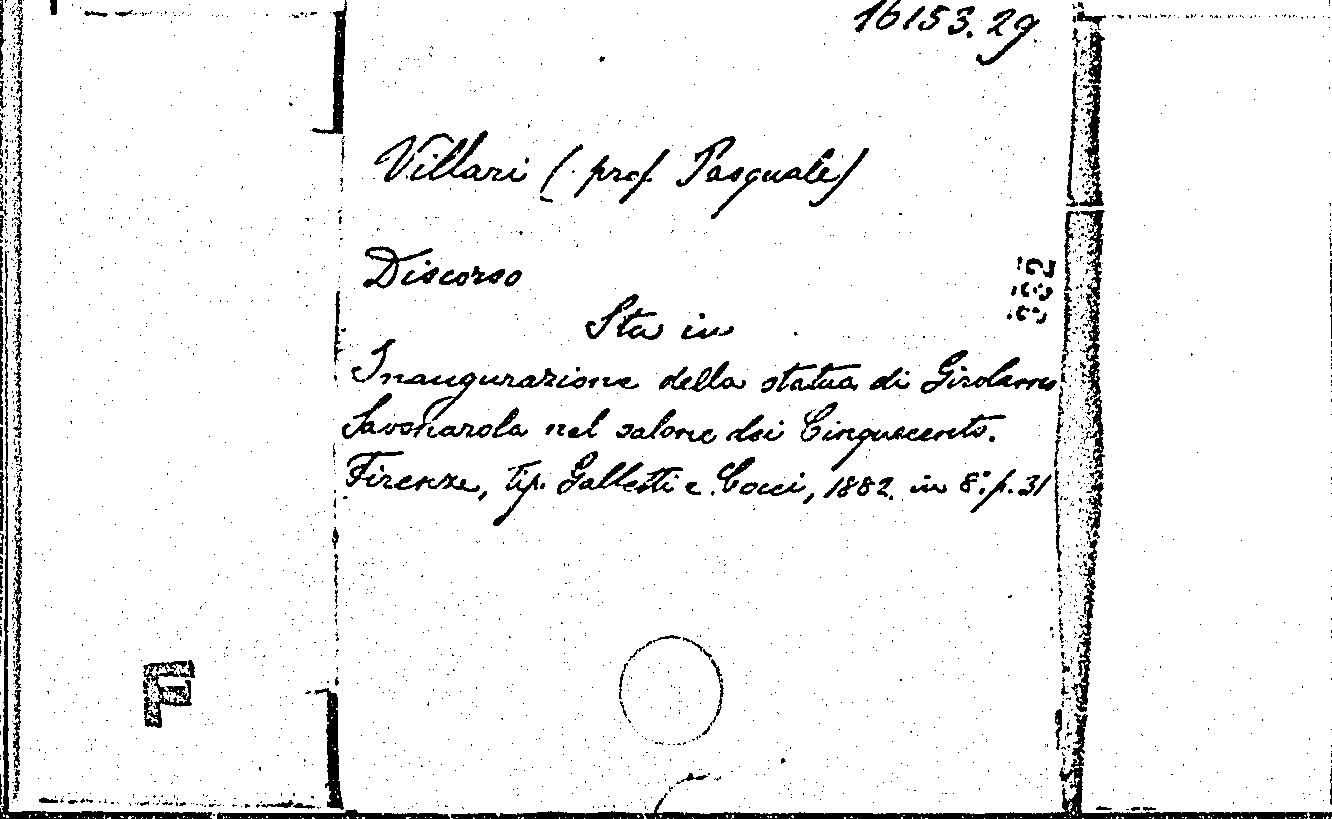 16153.29
Villari (prof. Pasquale)
Discorso
Sta in
Inaugurazione della statua di Girolamo
Savonarola nel salone dei Cinquecento.
Firenze, tip. Galletti e Cocci, 1882. in 8.° p. 31
F